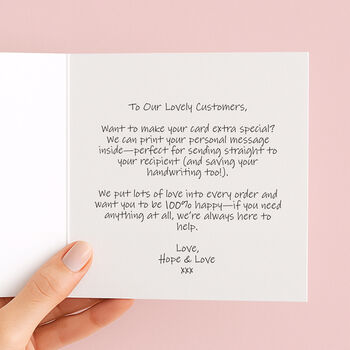 To Our Lovely Customers,
Want to make your card extra special?
We can print your personal message
inside—perfect for sending straight to
your recipient (and saving your
handwriting too!).
We put lots of love into every order and
want you to be 100% happy—if you need
anything at all, we're always here to
help.
Love,
Hope & Love
xxx